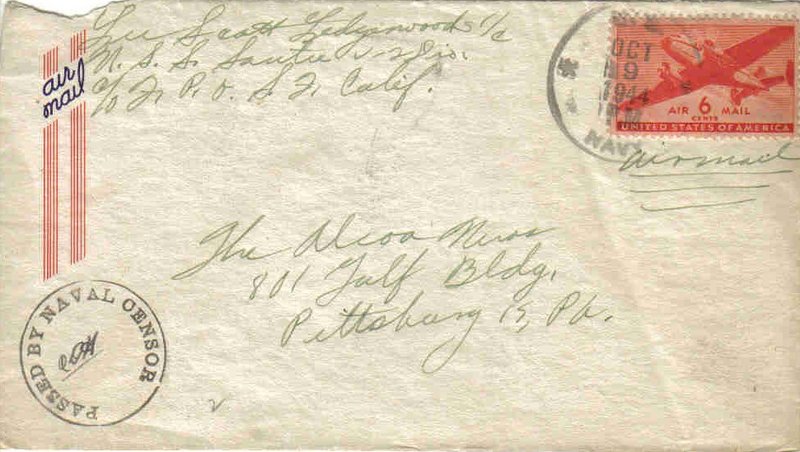 Lee Scott Ledgerwood
U.S.S.
c/o F. P. O. S. F. Calif.
air
mail
OCT
9
1944
NAVY
AIR 6 MAIL
CENTS
UNITED STATES OF AMERICA
airmail
The Alcoa News
801 Gulf Bldg.
Pittsburg Pa.
PASSED BY NAVAL CENSOR